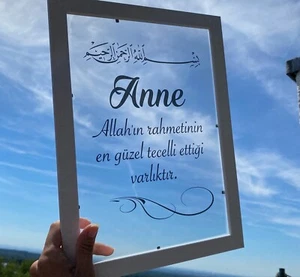 بسم الله الرحمن الرحيم
Anne
Allah'ın rahmetinin
en güzel tecelli ettiği
varlıktır.